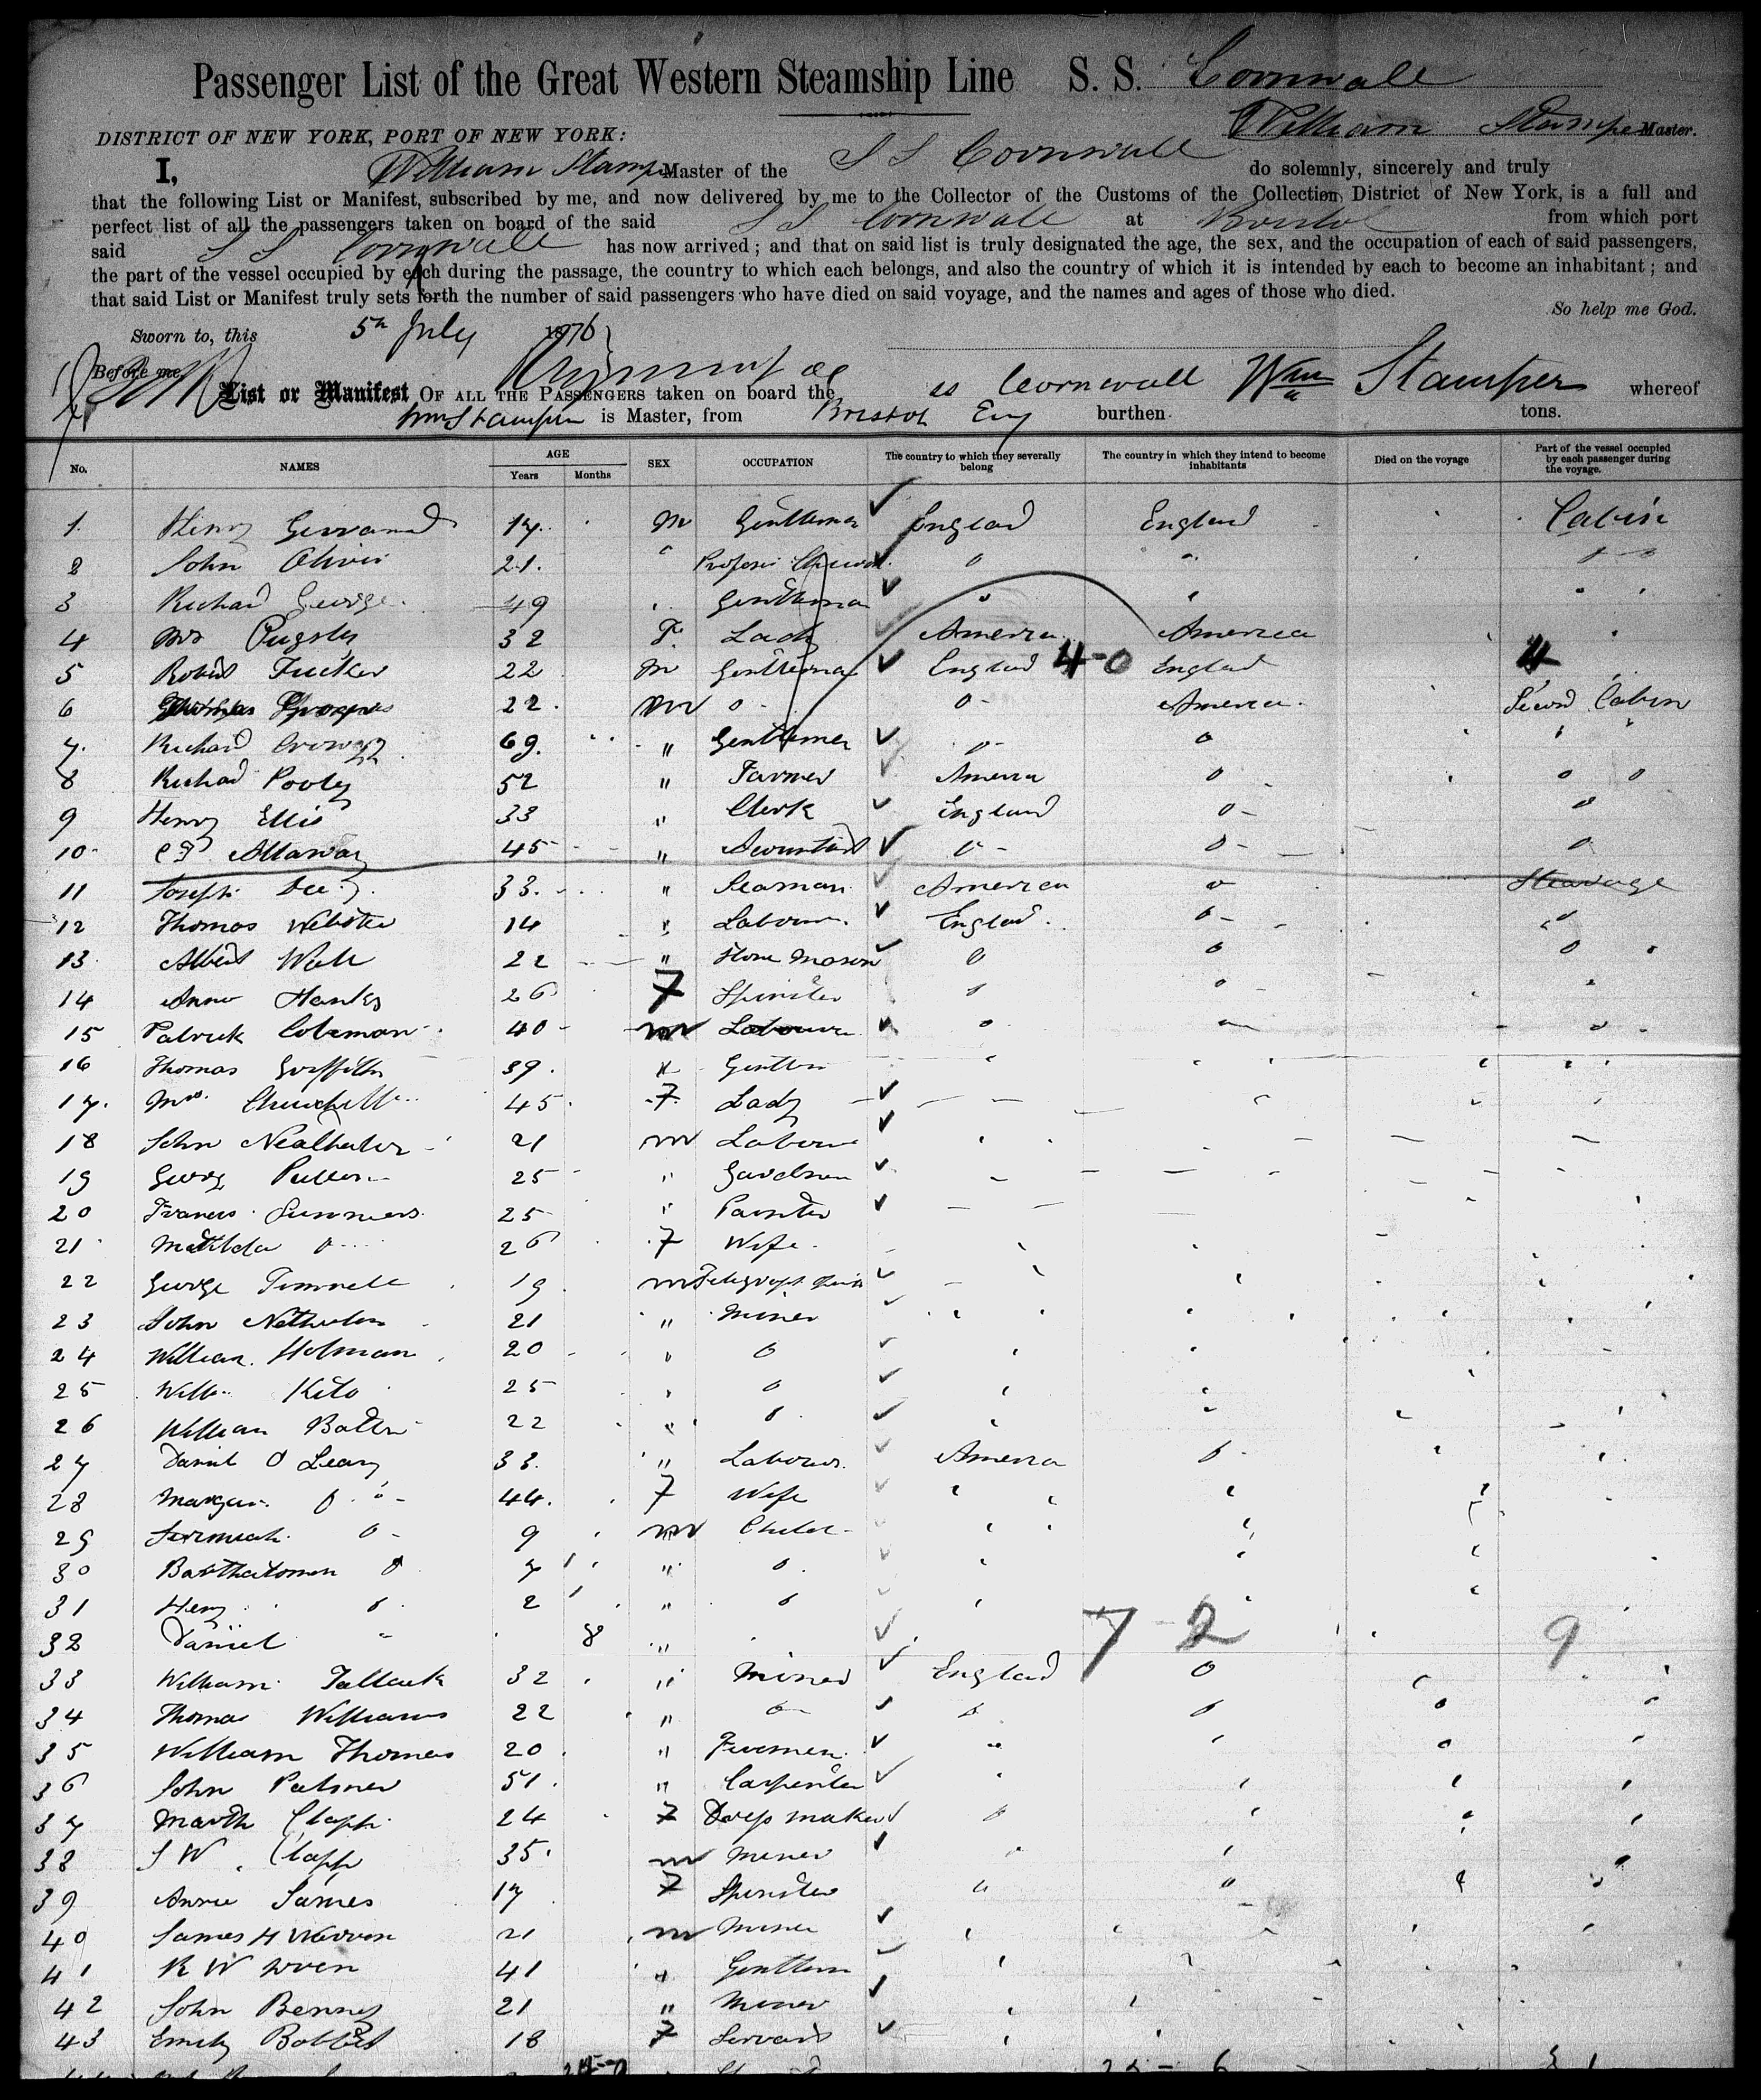 Passenger List of the Great Western Steamship Line S. S. Cornwall
William Stamper Master.
DISTRICT OF NEW YORK, PORT OF NEW YORK:
I, William Stamper Master of the S S Cornwall do solemnly, sincerely and truly
that the following List or Manifest, subscribed by me, and now delivered by me to the Collector of the Customs of the Collection District of New York, is a full and
perfect list of all the passengers taken on board of the said S S Cornwall at Bristol from which port
said S S Cornwall has now arrived; and that on said list is truly designated the age, the sex, and the occupation of each of said passengers,
the part of the vessel occupied by each during the passage, the country to which each belongs, and also the country of which it is intended by each to become an inhabitant; and
that said List or Manifest truly sets forth the number of said passengers who have died on said voyage, and the names and ages of those who died.
So help me God.
Sworn to, this 5th July 1876
Before me,
List or Manifest OF ALL THE PASSENGERS taken on board the ss Cornwall Wm Stamper whereof
Wm Stamper is Master, from Bristol Eng burthen tons.
No. NAMES AGE Years Months SEX OCCUPATION The country to which they severally belong The country in which they intend to become inhabitants Died on the voyage Part of the vessel occupied by each passenger during the voyage.
1. Henry 17 m Gentleman England England Cabin
2 John Oliver 21 "
3 Richard George 49 " Gentleman " "
4 Mrs Pugsley 32 F Lady America America
5 Robert Tucker 22 m Gentleman England 4-0 England 4
6 22 m o o America Second Cabin
7. Richard 69 " Gentleman o o
8 Richard Pooley 52 " Farmer America o o o
9 Henry Ellis 33 " Clerk England o o
10 Attaway 45 " Accountant o o o
11 Joseph 33 " Seaman America o Stearage
12 Thomas Webster 14 " Labourer England o o
13 Albert Wall 22 " Stone Mason o o o
14 Anne Hanks 26 F Spinster o o "
15 Patrick Coleman 40 m Labourer o
16 Thomas Griffiths 39 "
17. Mrs Churchill 45 F Lady
18 John 21 m Labourer
19 George Pullen 25 " Gardener
20 Francis Summers 25 " Painter
21 Matilda o 26 F Wife
22 George 19 m Telegraph
23 John 21 " Miner
24 William Holman 20 " o
25 Willm Kito 25 " o
26 William 22 " o
27 Daniel O Leary 33 " Labourer America o
28 Margaret o 44 F Wife
29 Jeremiah o 9 m Child
30 Bartholomew o 7 " o
31 Henry o 2 " o
32 Daniel " 8 " 7 2 9
33 William Tallack 32 " Miner England o
34 Thomas Williams 22 " o o o
35 William Thomas 20 " Firemen
36 John Palmer 51 " Carpenter
37 Martha Clapp 24 F Dress maker
38 J W Clapp 35 m Miner
39 Annie James 17 F Spinster
40 James H Warren 21 m Miner
41 R W Wren 41 " Gentleman
42 John Benney 21 " Miner
43 Emily 18 F Servant